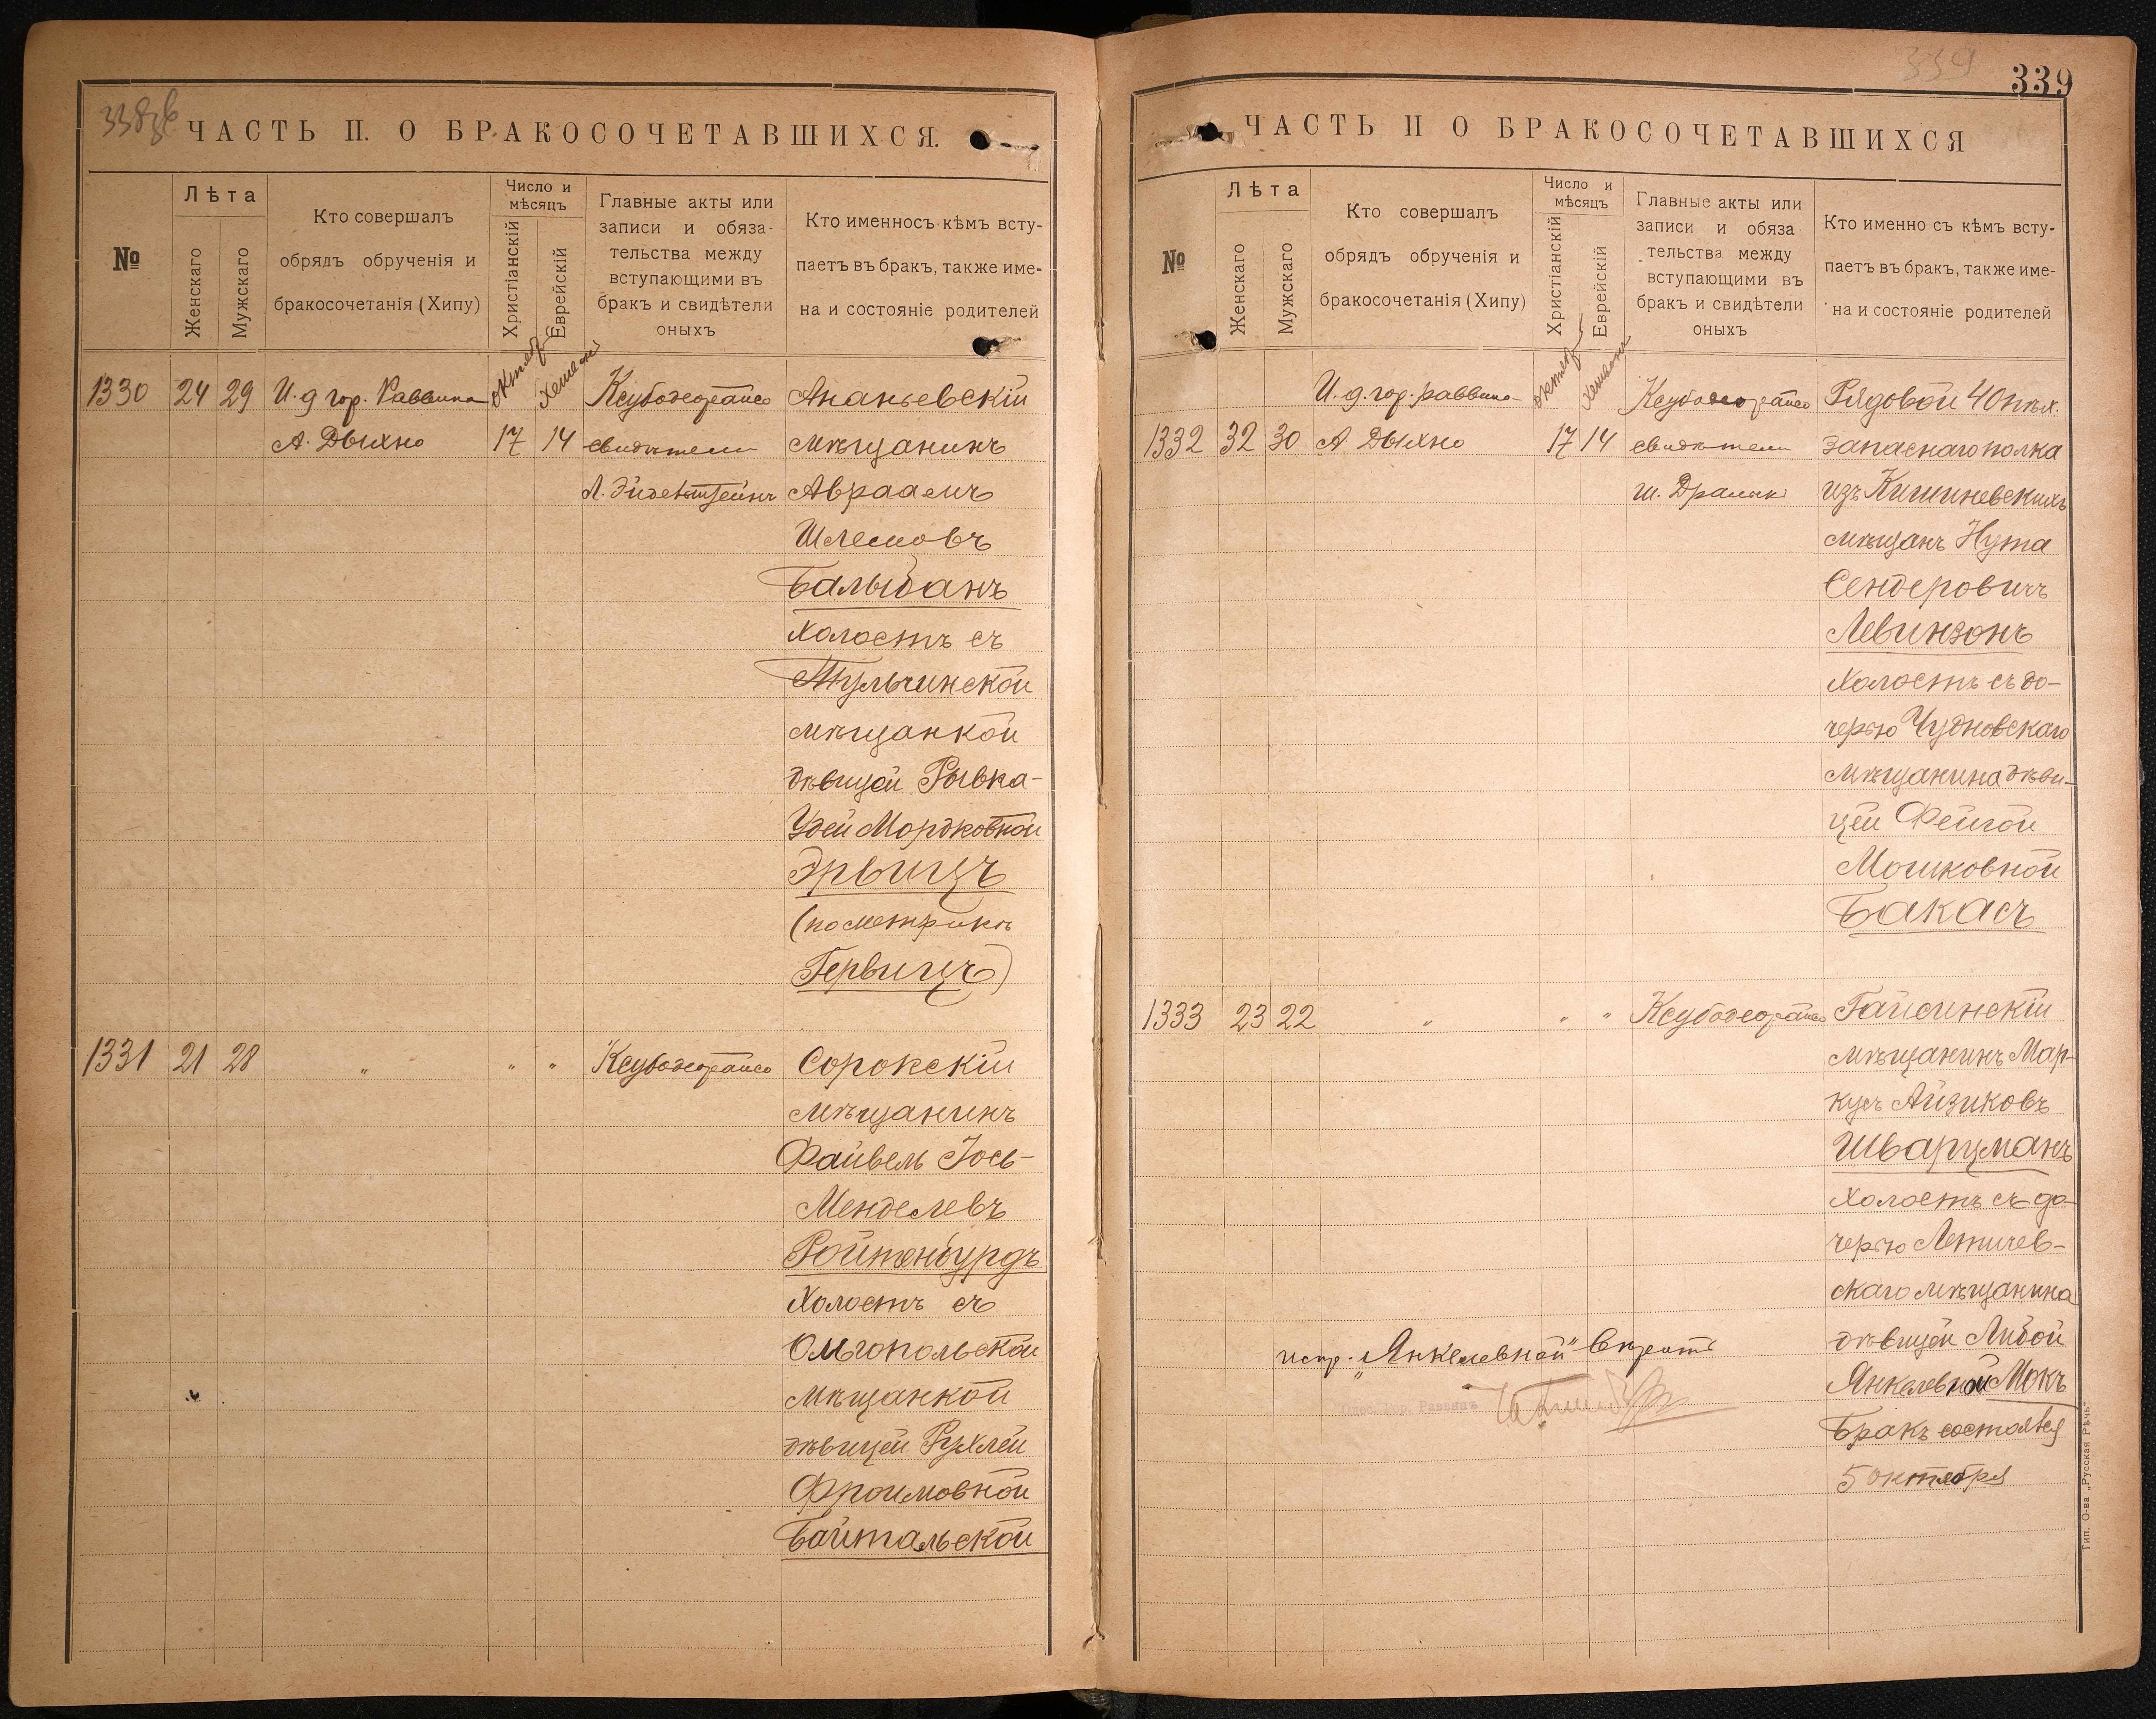 338 об
ЧАСТЬ II. О БРАКОСОЧЕТАВШИХСЯ.
№
Лѣта
Женскаго
Мужскаго
Кто совершалъ
обрядъ обрученія и
бракосочетанія (Хипу)
Число и
мѣсяцъ
Христіанскій
Еврейскій
Главные акты или
записи и обяза-
тельства между
вступающими въ
бракъ и свидѣтели
оныхъ
Кто именносъ кѣмъ всту-
паетъ въ бракъ, также име-
на и состояніе родителей
1330 24 29 И. д гор. Раввина
А. Дыхно
октяб
Хешван
17 14
свидѣтели
Л. Эйдельштейнъ
Ананьевскій
мѣщанинъ
Авраамъ
Шлемовъ
Балыбанъ
Холостъ съ
Тульчинской
мѣщанкой
дѣвицей Рывка-
Удей Мордковной
Эрвицъ
(по метрикѣ
Гервицъ)
1331 21 28 " " "
Сорокскій
мѣщанинъ
Файвель Іось-
Менделевъ
Ройтенбурдъ
Холостъ съ
Ольгопольской
мѣщанкой
дѣвицей Рухлей
Фроимовной
Байтальской
339
339
ЧАСТЬ II О БРАКОСОЧЕТАВШИХСЯ
№
Лѣта
Женскаго
Мужскаго
Кто совершалъ
обрядъ обрученія и
бракосочетанія (Хипу)
Число и
мѣсяцъ
Христіанскій
Еврейскій
Главные акты или
записи и обяза
тельства между
вступающими въ
бракъ и свидѣтели
оныхъ
Кто именно съ кѣмъ всту-
паетъ въ бракъ, также име-
на и состояніе родителей
И. д. гор. раввина
1332 32 30 А Дыхно
октяб
Хешван
17 14
свидѣтели
Ш. Дралик
Рядовой 40 пѣх.
запаснаго полка
изъ Кишиневскихъ
мѣщанъ Нута
Сендеровичъ
Левинзонъ
Холостъ съ до-
черью Чудновскаго
мѣщанина дѣви-
цей Фейгой
Мошковной
Бакасъ
1333 23 22 " " "
Гайсинскій
мѣщанинъ Мар-
кусъ Айзиковъ
Шварцманъ
Холостъ съ до-
черью Летичев-
скаго мѣщанина
дѣвицей Либой
Янкелевной Мокъ
Бракъ состоялся
5 октября
испр. „Янкелевной" вѣрить
Одес. Гор. Раввинъ
Тип. О-ва „Русская Рѣчь"